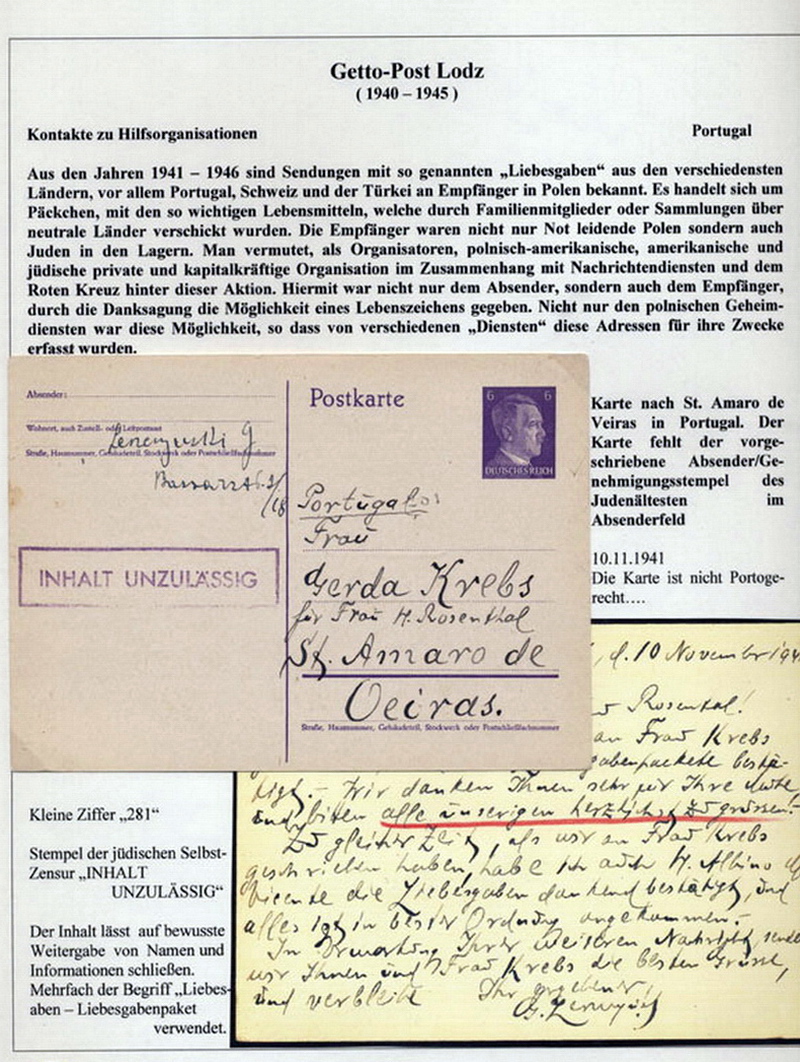 Getto-Post Lodz
( 1940 – 1945 )
Kontakte zu Hilfsorganisationen
Portugal
Aus den Jahren 1941 – 1946 sind Sendungen mit so genannten „Liebesgaben“ aus den verschiedensten
Ländern, vor allem Portugal, Schweiz und der Türkei an Empfänger in Polen bekannt. Es handelt sich um
Päckchen, mit den so wichtigen Lebensmitteln, welche durch Familienmitglieder oder Sammlungen über
neutrale Länder verschickt wurden. Die Empfänger waren nicht nur Not leidende Polen sondern auch
Juden in den Lagern. Man vermutet, als Organisatoren, polnisch-amerikanische, amerikanische und
jüdische private und kapitalkräftige Organisation im Zusammenhang mit Nachrichtendiensten und dem
Roten Kreuz hinter dieser Aktion. Hiermit war nicht nur dem Absender, sondern auch dem Empfänger,
durch die Danksagung die Möglichkeit eines Lebenszeichens gegeben. Nicht nur den polnischen Geheim-
diensten war diese Möglichkeit, so dass von verschiedenen „Diensten“ diese Adressen für ihre Zwecke
erfasst wurden.
Absender:
Wohnort, auch Zustell- oder Leitpostamt
Straße, Hausnummer, Gebäudeteil, Stockwerk oder Postschließfachnummer
INHALT UNZULÄSSIG
Postkarte
6 6
DEUTSCHES REICH
Portugal
Frau
Gerda Krebs
für Frau H. Rosenthal
St. Amaro de
Oeiras.
Straße, Hausnummer, Gebäudeteil, Stockwerk oder Postschließfachnummer
Karte nach St. Amaro de
Veiras in Portugal. Der
Karte fehlt der vorge-
schriebene Absender/Ge-
nehmigungsstempel des
Judenältesten im
Absenderfeld
10.11.1941
Die Karte ist nicht Portoge-
recht….
, d. 10 November 194
Rosental!
an Frau Krebs
gabenpackete bestä-
tigt. - Wir danken Ihnen sehr für Ihre
und bitten alle unserigen herzlichst zu grüssen!
Zu gleicher Zeit, als wir an Frau Krebs
geschrieben haben, habe ich auch H. Albino d
Vicente die Liebesgaben dankend bestätigt, und
alles ist in bester Ordnung angekommen. -
In Erwartung Ihrer weiteren Nachricht, sende
wir Ihnen und Frau Krebs die besten Grüsse,
und verbleibe Ihr ergebener,
Kleine Ziffer „281“
Stempel der jüdischen Selbst-
Zensur „INHALT
UNZULÄSSIG“
Der Inhalt lässt auf bewusste
Weitergabe von Namen und
Informationen schließen.
Mehrfach der Begriff „Liebes-
aben – Liebesgabenpaket
verwendet.